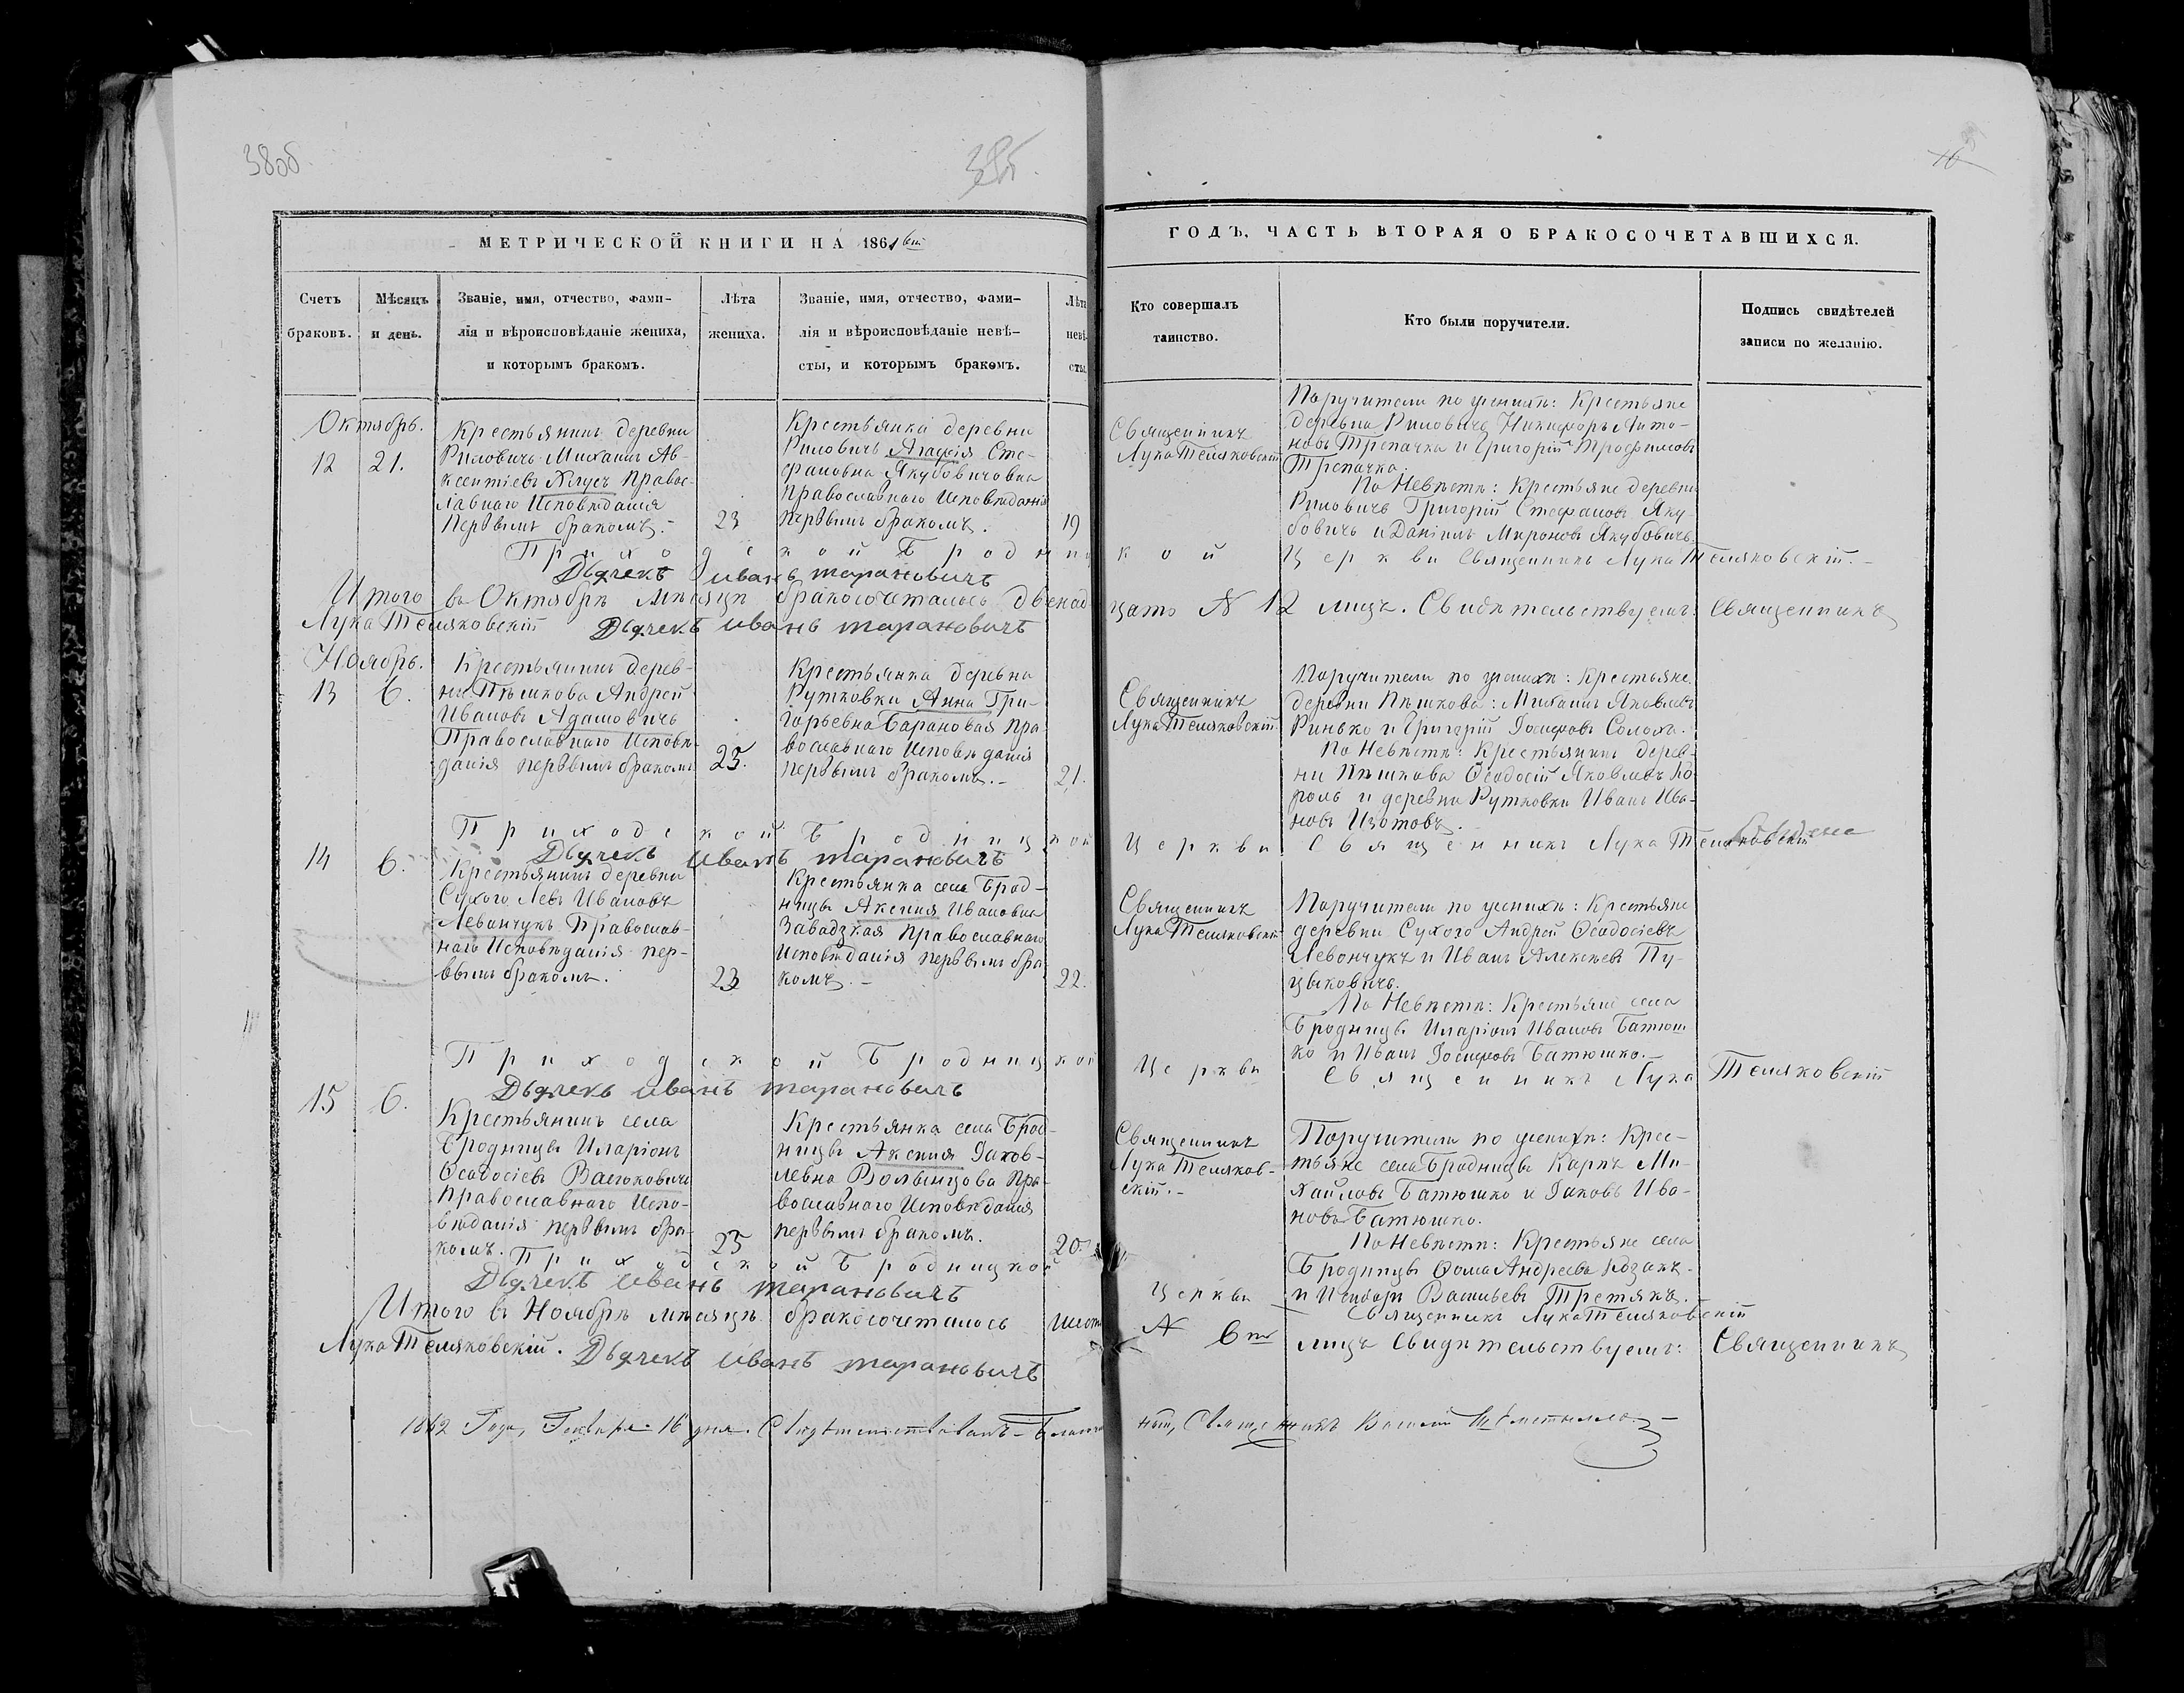 38об
38об.
16
МЕТРИЧЕСКОЙ КНИГИ НА 1861
ГОДЪ, ЧАСТЬ ВТОРАЯ О БРАКОСОЧЕТАВШИХСЯ.
Счетъ браковъ.
Мѣсяцъ и день.
Званіе, имя, отчество, фами-
лія и вѣроисповѣданіе жениха,
и которымъ бракомъ.
Лѣта жениха.
Званіе, имя, отчество, фами-
лія и вѣроисповѣданіе невѣ-
сты, и которымъ бракомъ.
Лѣта невѣ- сты.
Кто совершалъ
таинство.
Кто были поручители.
Подпись свидѣтелей
записи по желанію.
Октябрь.
12
21.
Крестьянинъ деревни
Риловичь Михаилъ Ав-
ксентіевъ Православ-
лавнаго Исповѣданія
первымъ бракомъ.-
23
Крестьянка деревни
Риловичь Агафія Сте-
фановна Якубовичовна
Православнаго Исповѣданія
первымъ бракомъ.
19
Священникъ
Лука Теляковскій
Поручители по женихѣ: Крестьяне
деревни Риловичь Никифоръ Анто-
новъ Трепачка и Григорій Трофимовъ
Трепачка.
По Невѣстѣ: Крестьяне деревни
Риловичь Григорій Стефановъ Яку-
бовичь и Даніилъ Мироновъ Якубовичь.
Приходской Бродницкой Церкви Священникъ Лука Теляковскій.-
Дьячекъ Иванъ Тарановичъ
Итого въ Октябрѣ мѣсяцѣ бракосочеталось двенадцать N 12 лицъ. Свидѣтельствуемъ: Священникъ
Лука Теляковскій Дьячекъ Иванъ Тарановичъ
Ноябрь.
13
6.
Крестьянинъ дерев-
ни Пѣшкова Андрей
Ивановъ Адамовичь
Православнаго Исповѣ-
данія первымъ бракомъ
25.
Крестьянка деревни
Рутковки Анна Гри-
горьевна Барановая Пра-
вославнаго Исповѣданія
первымъ бракомъ.-
21.
Священникъ
Лука Теляковскій.
Поручители по женихѣ: Крестьяне
деревни Пѣшкова: Михаилъ Яковлевъ
Ринько и Григорій Іосифовъ Солоха.
По Невѣстѣ: Крестьянинъ дерев-
ни Пѣшкова Ѳеодосій Яковлевъ Ко-
роль и деревни Рутковки Иванъ Ива-
новъ Изотовъ.
Приходской Бродницкой Церкви Священникъ Лука Теляковскій
Дьячекъ Иванъ Тарановичъ
14
6.
Крестьянинъ деревни
Сухого Левъ Ивановъ
Левончукъ Православ-
наго Исповѣданія пер-
вымъ бракомъ.
23
Крестьянка села Брод-
ницы Аксенія Ивановна
Завадзкая Православнаго
Исповѣданія первымъ бра-
комъ.-
22.
Священникъ
Лука Теляковскій
Поручители по женихѣ: Крестьяне
деревни Сухого Андрей Ѳеодосіевъ
Левончукъ и Иванъ Алексѣевъ Пу-
цыковичь.
По Невѣстѣ: Крестьяне села
Бродницы Иларіонъ Ивановъ Батюш-
ко и Иванъ Іосифовъ Батюшко.-
Приходской Бродницкой Церкви Священникъ Лука Теляковскій
Дьячекъ Иванъ Тарановичъ
15
6.
Крестьянинъ села
Бродницы Иларіонъ
Ѳеодосіевъ Васюковичь
Православнаго Испо-
вѣданія первымъ бра-
комъ.
25
Крестьянка села Брод-
ницы Аксенія Іаков-
левна Волынцова Пра-
вославнаго Исповѣданія
первымъ бракомъ.
20.
Священникъ
Лука Теляков-
скій.-
Поручители по женихѣ: Крес-
тьяне села Бродницы Карпъ Ми-
хайловъ Батюшко и Іаковъ Ива-
новъ Батюшко.
По Невѣстѣ: Крестьяне села
Бродницы Ѳома Андреевъ
и Василіевъ Третякъ.-
Приходской Бродницкой Церкви Священникъ Лука Теляковскій
Дьячекъ Иванъ Тарановичъ
Итого въ Ноябрѣ мѣсяцѣ бракосочеталось N 6 лицъ Свидѣтельствуемъ: Священникъ
Лука Теляковскій. Дьячекъ Иванъ Тарановичъ
1862 Года, Генваря 16 дня. Свидѣтельствовалъ Священникъ